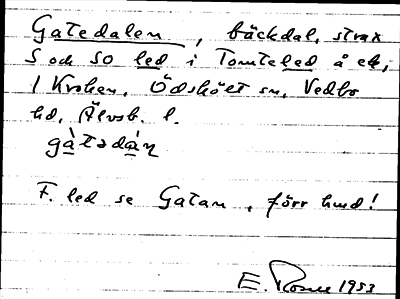 Gatedalen, bäckdal, strax
S och SO led i Tomteled å ek,
1 Kroken, Ödskölt sn, Vedbo
hd, Älvsb. l.
gàtədàṇ
F. led se Gatan, förr hmd!
E. Rosell 1953